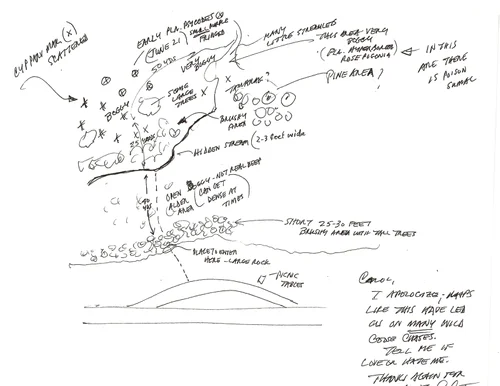 CYP PARV MAR (X)
SCATTERED
EARLY PLA. PSYCODES ⊗
(JUNE 21) SMALL PURPLE
FRINGED
50 YDS
MANY
LITTLE STREAMLETS
THIS AREA VERY
BOGGY
(PLA. 
ROSE POGONIA)
IN THIS
AREA THERE
IS POISON
SUMAC
VERY
BOGGY
TAMARACK?
PINE AREA?
BOGGY
SOME
LARGE
TREES
BRUSHY
AREA
25 YARDS
HIDDEN STREAM (2-3 feet wide)
40
YDS
OPEN
ALDER
AREA
BOGGY - NOT REAL DEEP
CAN GET
DENSE AT
TIMES
SHORT 25-30 FEET
BRUSHY AREA WITH TALL TREES
PLACE TO ENTER
HERE - LARGE ROCK
PICNIC
TABLES
CAROL,
I APOLOGIZE, - MAPS
LIKE THIS HAVE LED
US ON MANY WILD
GOOSE CHASES.
TELL ME IF
LOVE OR HATE ME.
THANKS AGAIN FOR